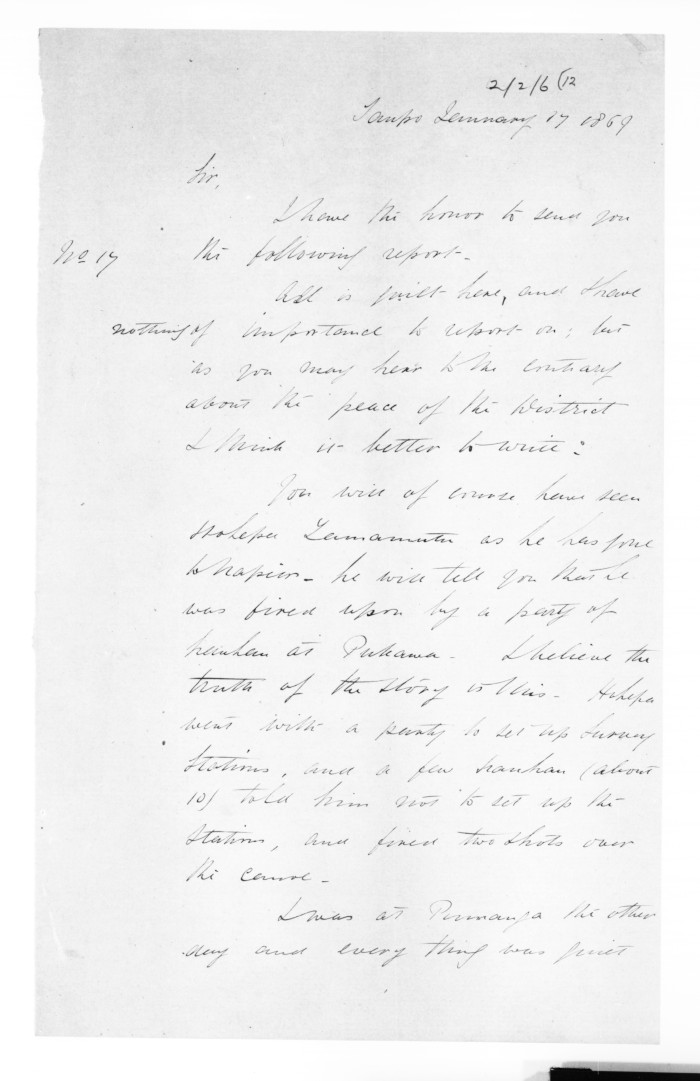 2/2/6 (12
Taupo January 17 1869
Sir,
I have the honor to send you
No 17
the following report -
All is quiet here, and I have
nothing of importance to report on; but
as you may hear to the contrary
about the peace of the District
I think it better to write:
You will of course have seen
Hohepa Tamamutu as he has gone
to Napier - he will tell you that he
was fired upon by a party of
hauhau at Pukawa - I believe the
truth of the story is this - Hohepa
went with a party to set up Survey
Stations, and a few hauhau (about
10) told him not to set up the
Station, and fired two shots over
the canoe -
I was at the other
day and every thing was quiet